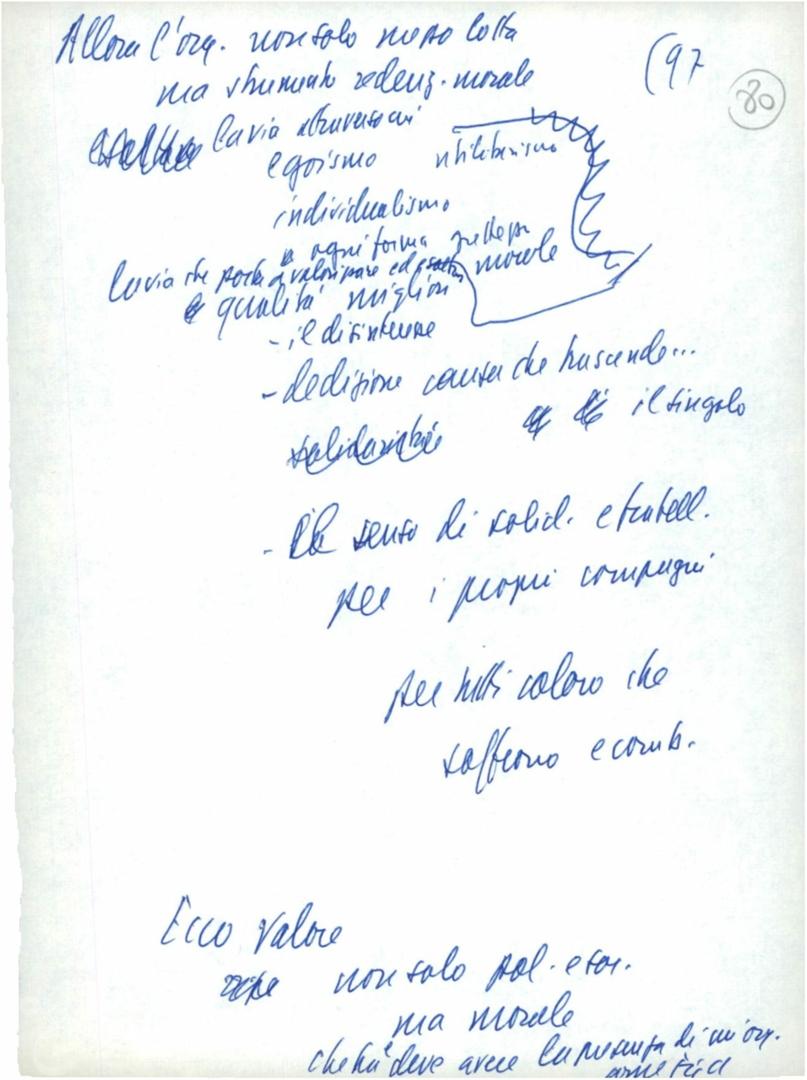 Allora l'org. non solo mezzo lotta
(97
80
ma strumento redenz. morale
la via attraverso cui
egoismo utilitarismo
individualismo
e ogni forma morale
la via che porta a valorizzare ed
e qualità migliori
- il disinteresse
- dedizione causa che trascende...
il singolo
solidarietà
- il senso di solid. e fratell.
per i propri compagni
per tutti coloro che
soffrono e comb.
Ecco valore
non solo pol. e soc.
ma morale
che ha e deve avere la presenza di un'org.
come FGCI